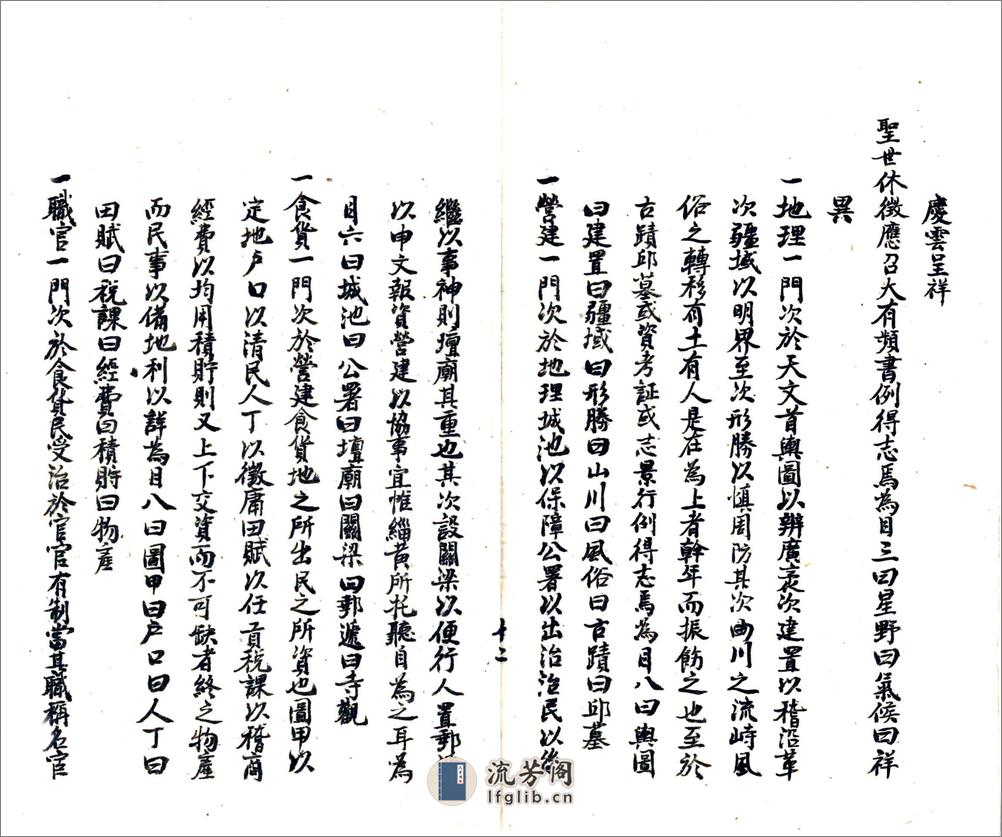 慶雲呈祥
聖世休徵應召大有頻書例得志焉為目三曰星野曰氣候曰祥
異
一地理一門次於天文首輿圖以辨廣袤次建置以稽沿革
次疆域以明界至次形勝以慎固防其次曲川之流峙風
俗之轉移有土有人是在為上者幹年而振飭之也至於
古蹟邱墓或資考証或志景行例得志焉為目八曰輿圖
曰建置曰疆域曰形勝曰山川曰風俗曰古蹟曰邱墓
一營建一門次於地理城池以保障公署以出治治民以後
十二
繼以事神則壇廟其重也其次設關梁以便行人置郵
以申文報資營建以協事宜惟緇黃所托聽自為之耳為
目六曰城池曰公署曰壇廟曰關梁曰郵遞曰寺觀
一食貨一門次於營建食貨地之所出民之所資也圖甲以
定地户口以清民人丁以徵庸田賦以任貢稅課以稽商
經費以均用積貯則又上下交資而不可缺者終之物產
而民事以備地利以詳為目八曰圖甲曰户口曰人丁曰
田賦曰稅課曰經費曰積貯曰物產
一職官一門次於食貨民受治於官官有制當其職稱名官
流芳阁
lfglib.cn